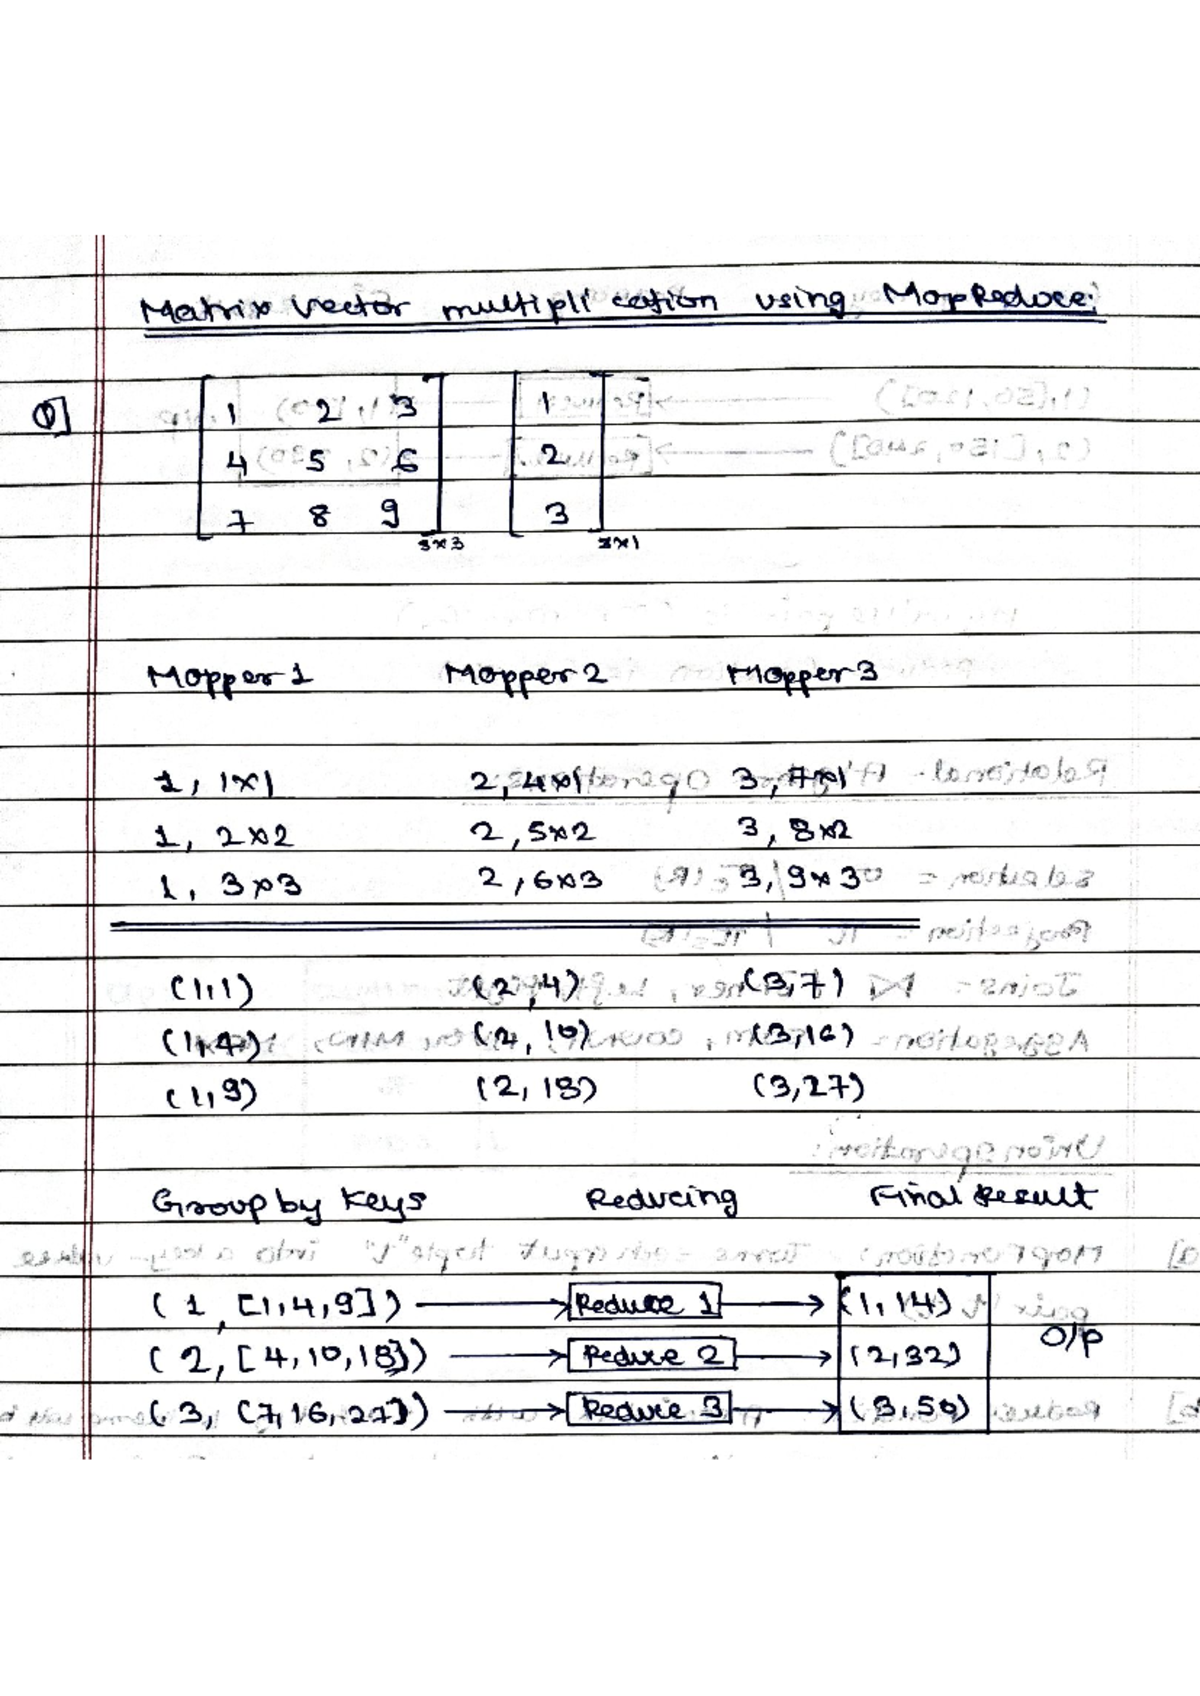 Matrix Vector multiplication using MapReduce:
Q]
1 2 3
4 5 6
7 8 9
3×3
1
2
3
3×1
Mapper 1 Mapper 2 Mapper 3
1, 1×1 2, 4×1 3, 7×1
1, 2×2 2, 5×2 3, 8×2
1, 3×3 2, 6×3 3, 9×3
(1,1) (2,4) (3,7)
(1,4) (2,10) (3,16)
(1,9) (2,18) (3,27)
Group by Keys Reducing Final Result
(1, [1,4,9]) Reduce 1 (1,14)
O/P
(2, [4,10,18]) Reduce 2 (2,32)
(3, (7,16,27]) Reduce 3 (3,50)